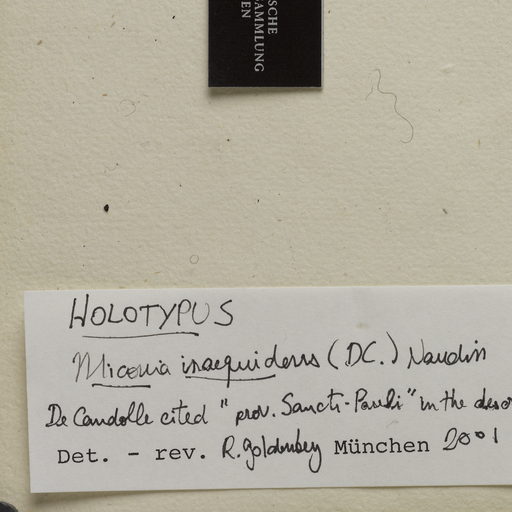 SCHE
AMMLUNG
EN
HOLOTYPUS
Miconia inaequidens (DC.) Naudin
De Candolle cited "prov. Sancti-Pauli" in the
Det. - rev. R. Goldenberg München 2001